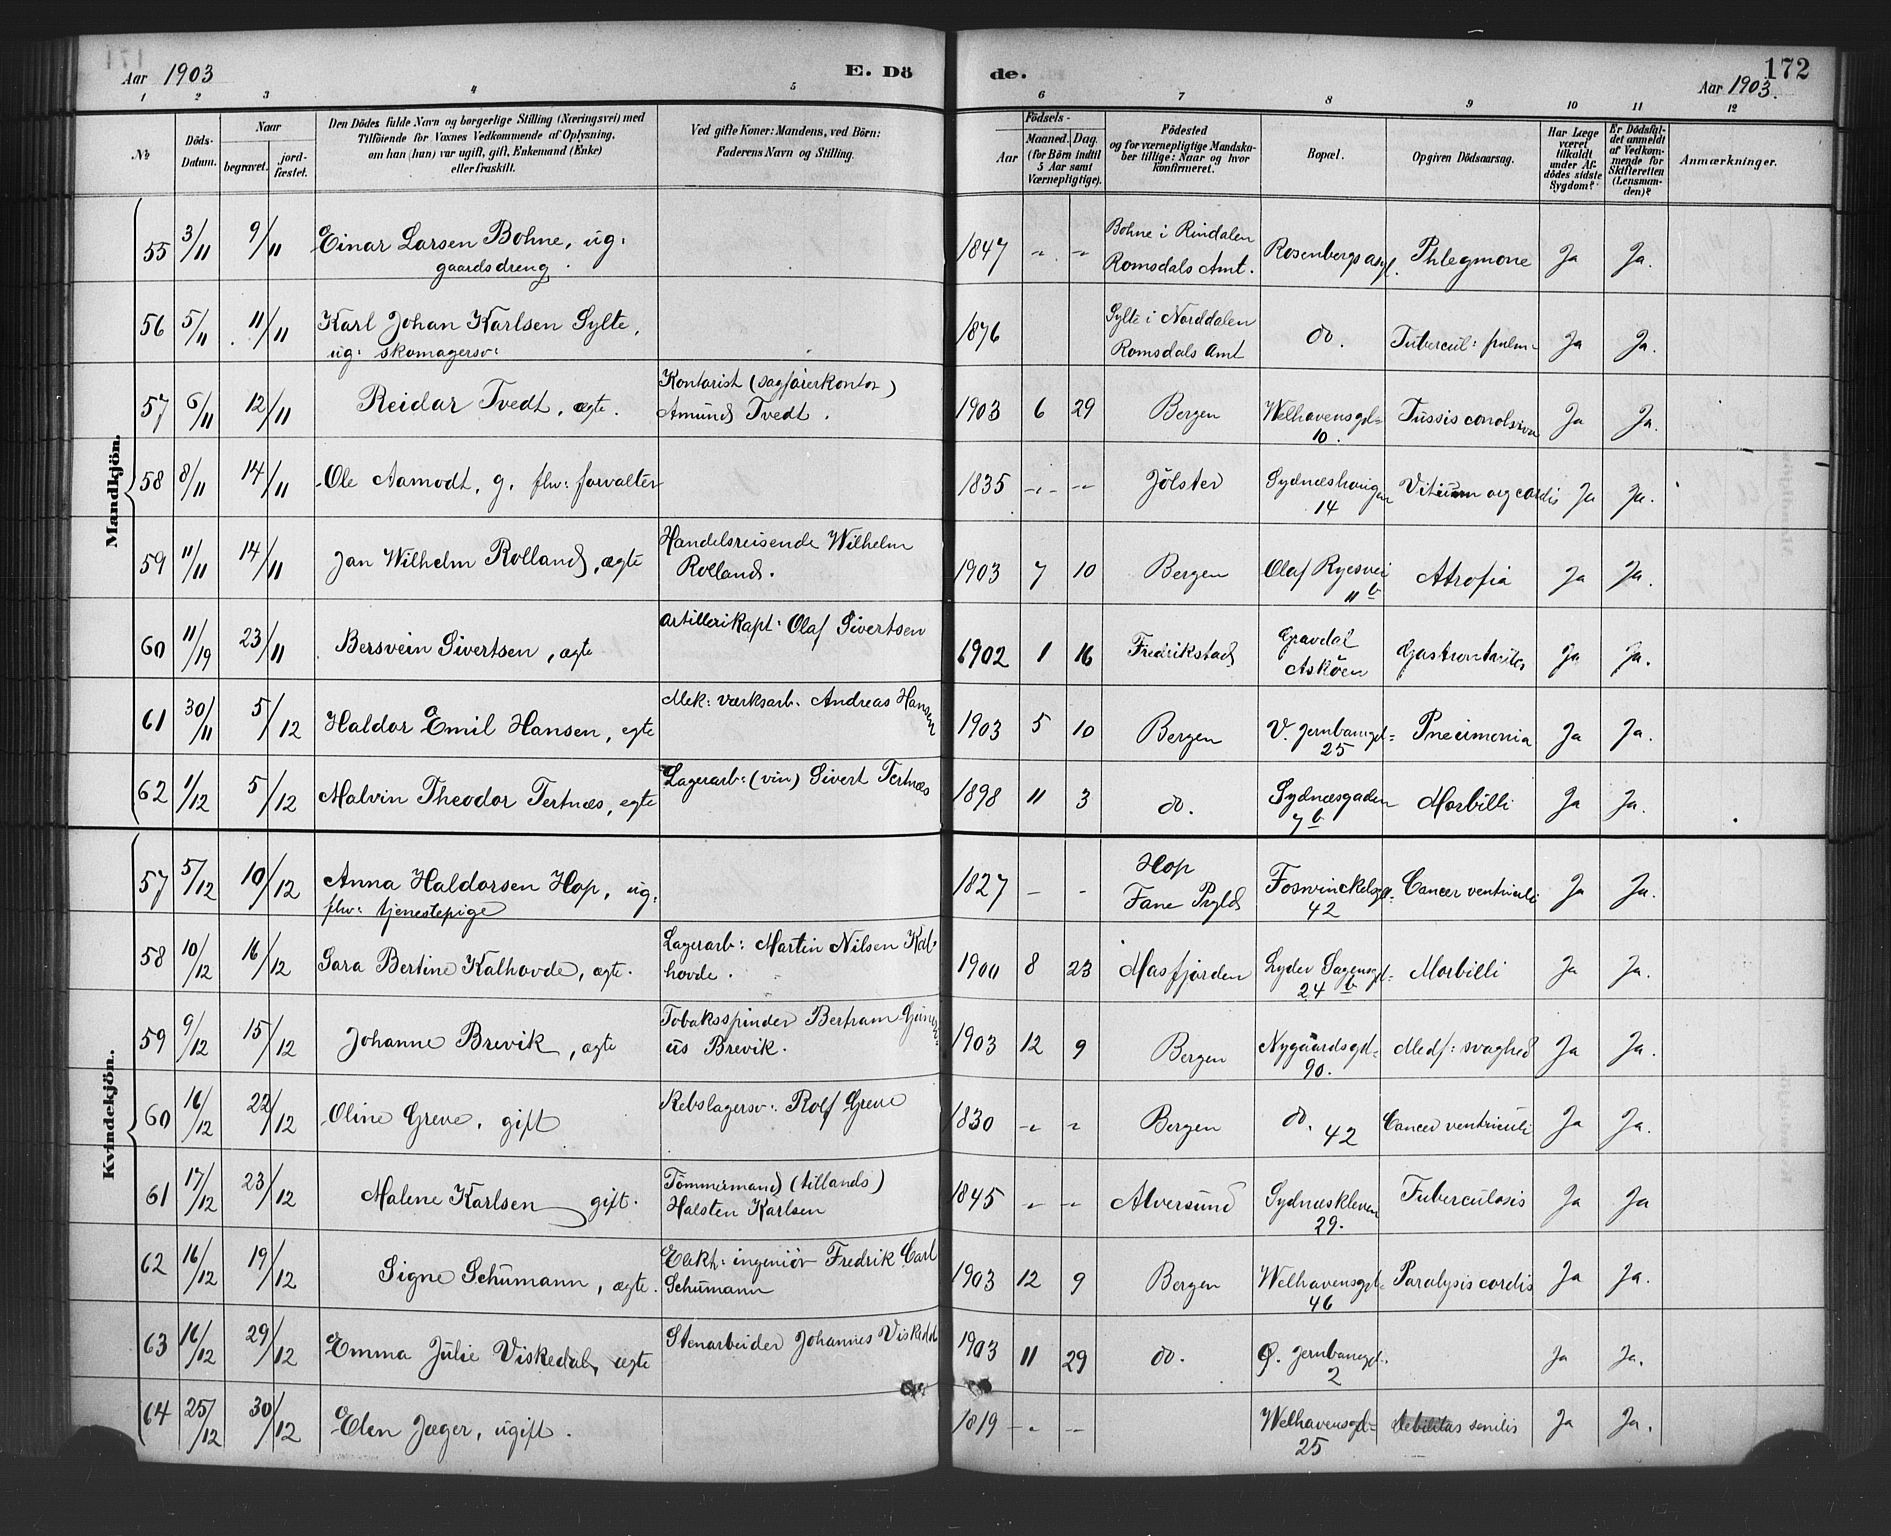 Aar 1903
E. Dö
de.
172
Aar 1903.
1 2 3 4 5 6 7 8 9 10 11 12
№
Döds-
Datum.
Naar
begravet.
jord-
fæstet.
Den Dödes fulde Navn og borgerlige Stilling (Næringsvei) med
Tilföiende for Voxnes Vedkommende af Oplysning,
om han (hun) var ugift, gift, Enkemand (Enke)
eller fraskilt.
Ved gifte Koner: Mandens, ved Börn:
Faderens Navn og Stilling.
Födsels-
Aar
Maaned. Dag.
(for Börn indtil
5 Aar samt
Værnepligtige).
Födested
og for værnepligtige Mandska-
ber tillige: Naar og hvor
konfirmeret.
Bopæl.
Opgiven Dödsaarsag.
Har Læge
været
tilkaldt
under Af-
dödes sidste
Sygdom?
Er Dödsfal-
det anmeldt
af Vedkom-
mende for
Skifteretten
(Lensman-
den)?
Anmærkninger.
Mandkjön.
55 3/11 9/11 Einar Larsen Bohne, ug: 1847 " " Bohne i Rindalen Rosenbergs asyl. Phlegmone Ja Ja.
gaardsdreng. Romsdals Amt.
56 5/11 11/11 Karl Johan Karlsen Sylte, 1876 Sylte i Norddalen do. Tubercul: pulm- Ja Ja.
ug: skomagersv: Romsdals Amt
57 6/11 12/11 Reidar Tvedt, ægte. Kontorist (sagførerkontor) 1903 6 29 Bergen Welhavensgd= Tussis Ja Ja.
Amund Tvedt. 10.
58 8/11 14/11 Ole Aamodt, g. fhv: forvalter 1835 " " Jölster Sydnæshaugen Vitium org cordis Ja Ja.
14
59 11/11 14/11 Jan Wilhelm Rolland, ægte Handelsreisende Wilhelm 1903 7 10 Bergen Olaf Ryesvei Atrofia Ja Ja.
Rolland. 11 b
60 11/19 23/11 Bersvein Sivertsen, ægte Artillerikapt: Olaf Sivertsen 1902 1 16 Fredrikstad Gravdal Ja Ja.
Asköen
61 30/11 5/12 Haldor Emil Hansen, egte Mek: værksarb. Andreas Hansen 1903 5 10 Bergen V. Jernbanegd= Pneumonia Ja Ja.
25
62 1/12 5/12 Malvin Theodor Tertnæs, egte Lagerarb: (vin) Sivert Tertnæs 1898 11 3 do. Sydnæsgaden Morbilli Ja Ja.
7 b
Kvindekjön.
57 5/12 10/12 Anna Haldorsen Hop, ug: 1827 - - Hop Fosswinckelsgd= Cancer ventriculi Ja Ja.
fhv: tjenestepige Fane Prgld 42
58 10/12 16/12 Sara Bertine Kalhovde, ægte. Lagerarb: Martin Nilsen Kal- 1900 8 23 Masfjorden Lyder Sagensgd= Morbilli Ja Ja.
hovde. 24 b
59 9/12 15/12 Johanne Brevik, ægte Tobaksspinder Bertram 1903 12 9 Bergen Nygaardsgd= Medf: svaghed Ja Ja.
Brevik. 90.
60 16/12 22/12 Oline Greve, gift Rebslagersv: Rolf Greve 1830 " " Bergen do. 42 Cancer ventriculi Ja Ja.
61 17/12 23/12 Malene Karlsen gift. Tømmermand (tillands) 1845 " " Alversund Sydnæskleven Tuberculosis Ja Ja
Halsten Karlsen 29.
62 16/12 19/12 Signe Schumann, ægte. Elekt: ingeniör Fredrik Carl 1903 12 9 Bergen Welhavensgd= Paralysis cordis Ja Ja.
Schumann 46
63 16/12 29/12 Emma Julie Viskedal, ægte Stenarbeider Johannes Viskedal 1903 11 29 do. Ø. Jernbanegd. Ja Ja.
2
64 25/12 30/12 Elen Jæger, ugift. 1819 " " Welhavensgd= debilitas senilis Ja Ja.
25